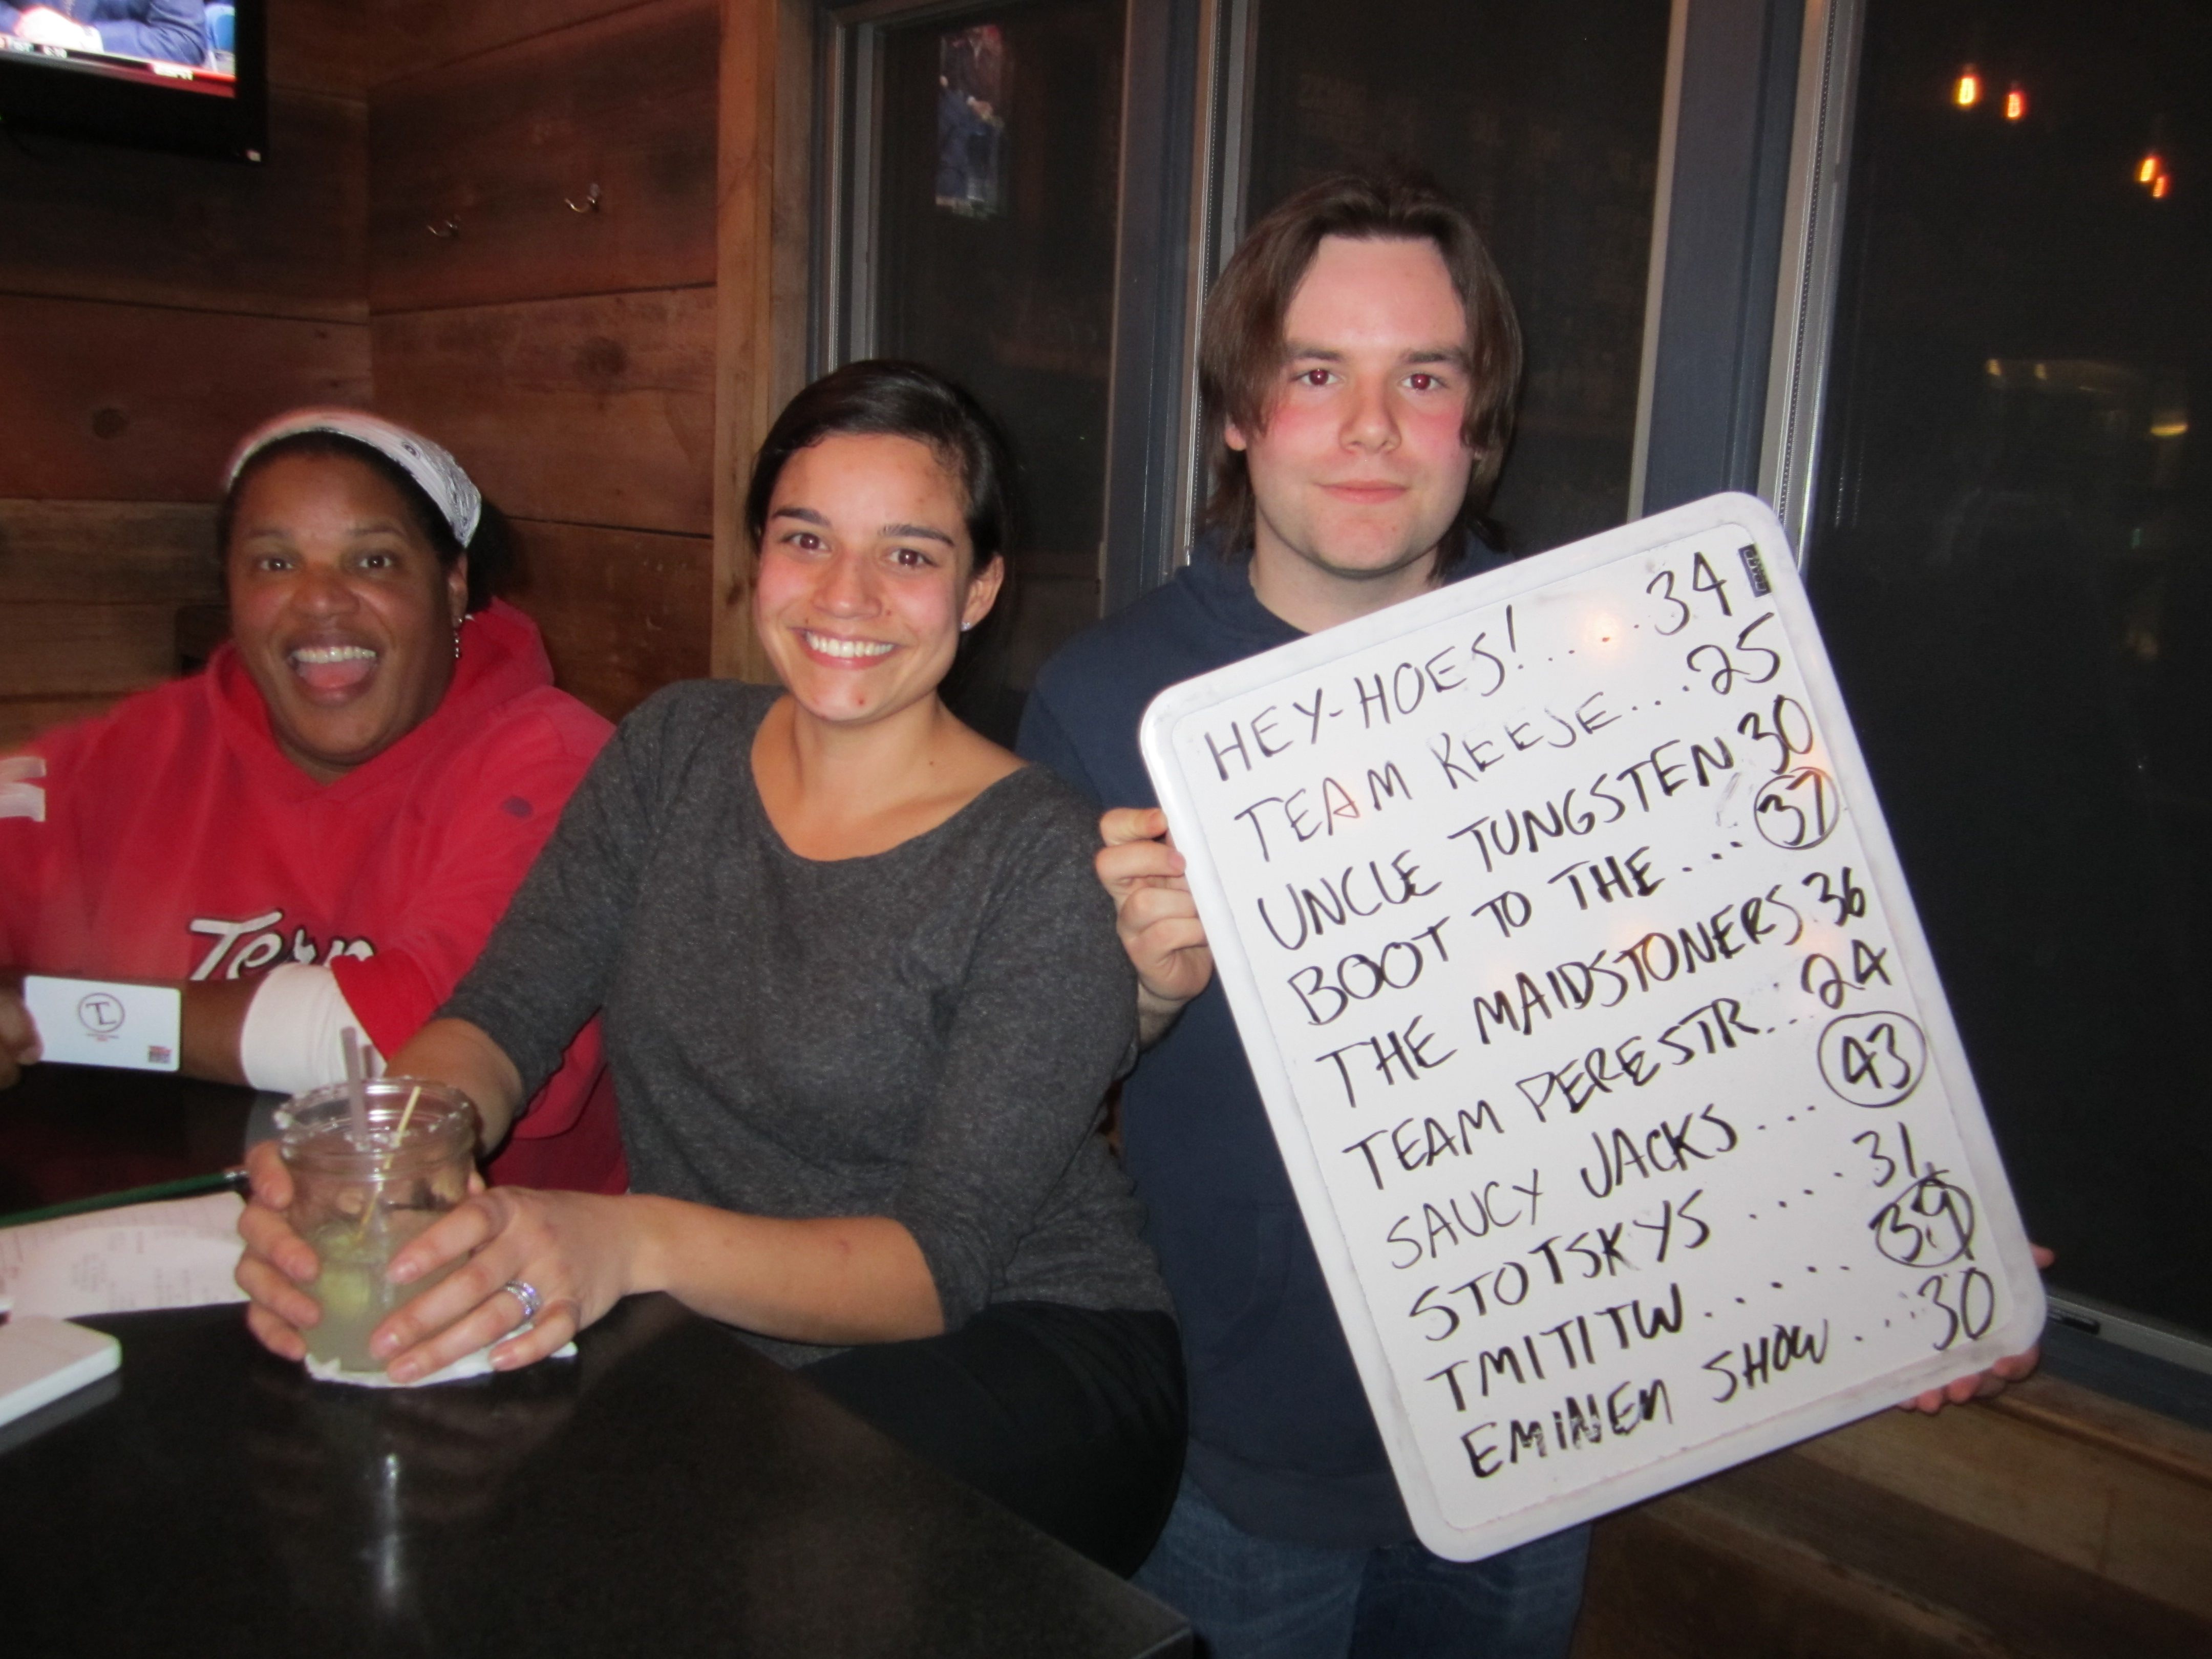 HEY-HOES!.....34
TEAM KEESE...25
UNCLE TUNGSTEN 30
BOOT TO THE....37
THE MAIDSTONERS.36
TEAM PERESTR...24
SAUCY JACKS....43
STOTSKYS.....31
TMITITW......39
EMINEM SHOW....30
TL